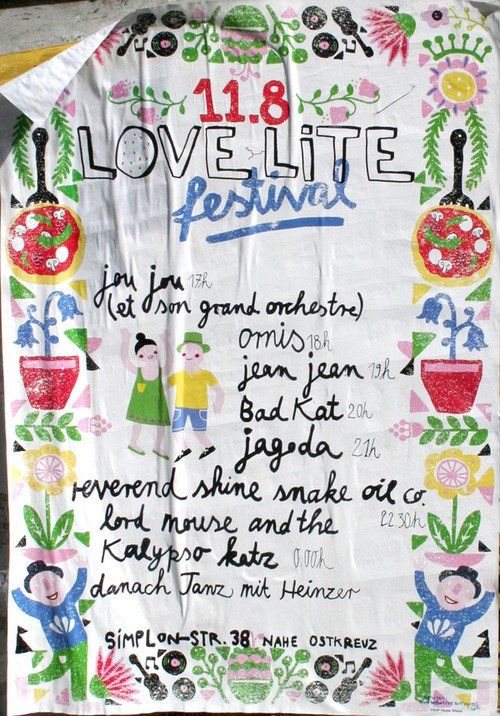 11.8
LOVE LiTE
festival
jou jou 17h
(et son grand orchestre)
omis 18h
jean jean 19h
Bad Kat 20h
jagoda 21h
reverend shine snake oil co.
22.30h
lord mouse and the
Kalypso katz 0.00h
danach Tanz mit Heinzer
SiMPLON-STR. 38 NAHE OSTKREUZ